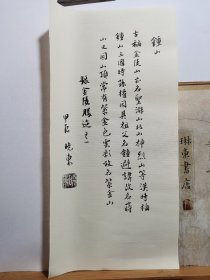 鍾山
古稱金陵山亦名聖游山北山神烈山等漢時稱
鍾山三國時孫權因其祖父名鍾避諱改名蔣
山又因山頂常有紫金色雲彩故名紫金山
錄金陵勝迹之一
甲辰 曉東
琳東書店